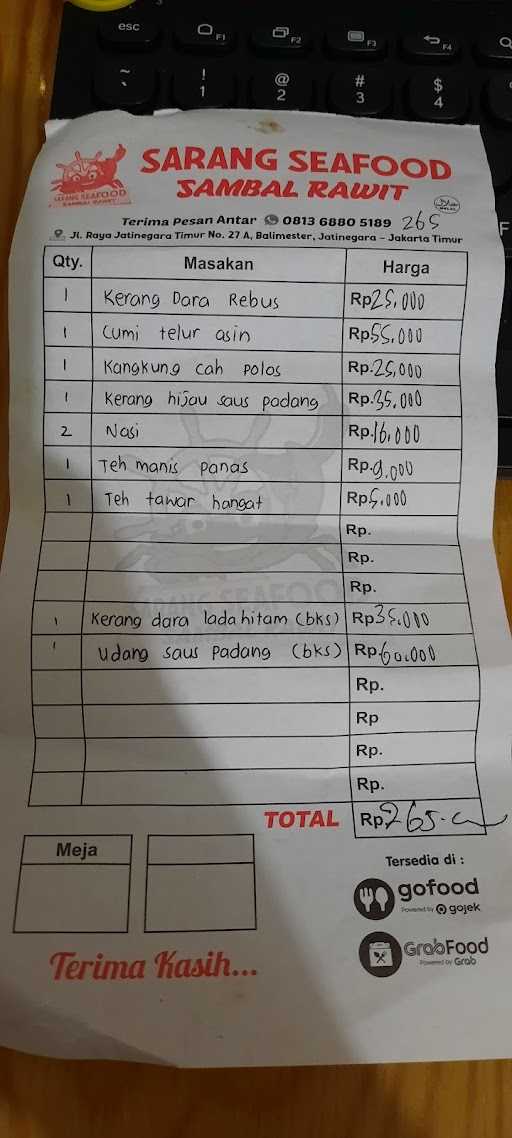 esc F1 F2 F3 F4
~ ` ! 1 @ 2 # 3 $ 4
SARANG SEAFOOD
SAMBAL RAWIT
SARANG SEAFOOD
SAMBAL RAWIT
Terima Pesan Antar 0813 6880 5189 265
Jl. Raya Jatinegara Timur No. 27 A, Balimester, Jatinegara - Jakarta Timur
Qty. Masakan Harga
1 Kerang Dara Rebus Rp25.000
1 Cumi telur asin Rp55.000
1 Kangkung cah polos Rp.25,000
1 Kerang hijau saus padang Rp.35.000
2 Nasi Rp.16.000
1 Teh manis panas Rp.9.000
1 Teh tawar hangat Rp5.000
Rp.
Rp.
Rp.
SARANG SEAFOOD
SAMBAL RAWIT
1 Kerang dara lada hitam (bks) Rp35.000
1 Udang saus padang (bks) Rp.60.000
Rp.
Rp
Rp.
Rp.
TOTAL Rp265.
Meja
Tersedia di :
gofood
Powered by gojek
GrabFood
Powered by Grab
Terima Kasih...